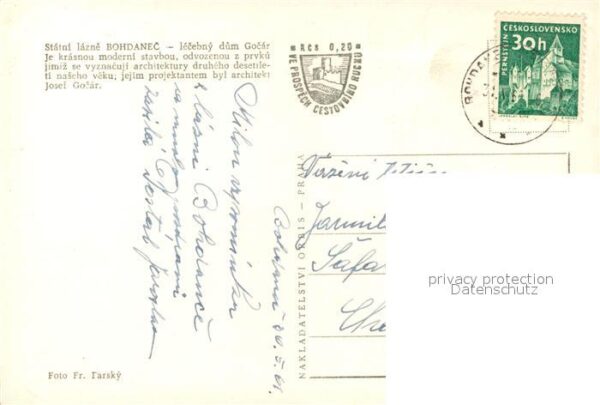 Státní lázně BOHDANEČ – léčebný dům Gočár
Je krásnou moderní stavbou, odvozenou z prvků
jimiž se vyznačují architektury druhého desetile-
tí našeho věku; jejím projektantem byl architekt
Josef Gočár.
Kčs 0,20
VE PROSPĚCH CESTOVNÍHO RUCHU
PERNŠTEJN
ČESKOSLOVENSKO
30h
BOHDANEČ
Milou vzpomínku
z lázní Bohdanče
pozdravy
zasílá Jaroslav
NAKLADATELSTVÍ ORBIS – PRAHA
Vážení
Jarmil
Šafa
Bohdaneč 30. 5. 61.
privacy protection
Datenschutz
Foto Fr. Tarský